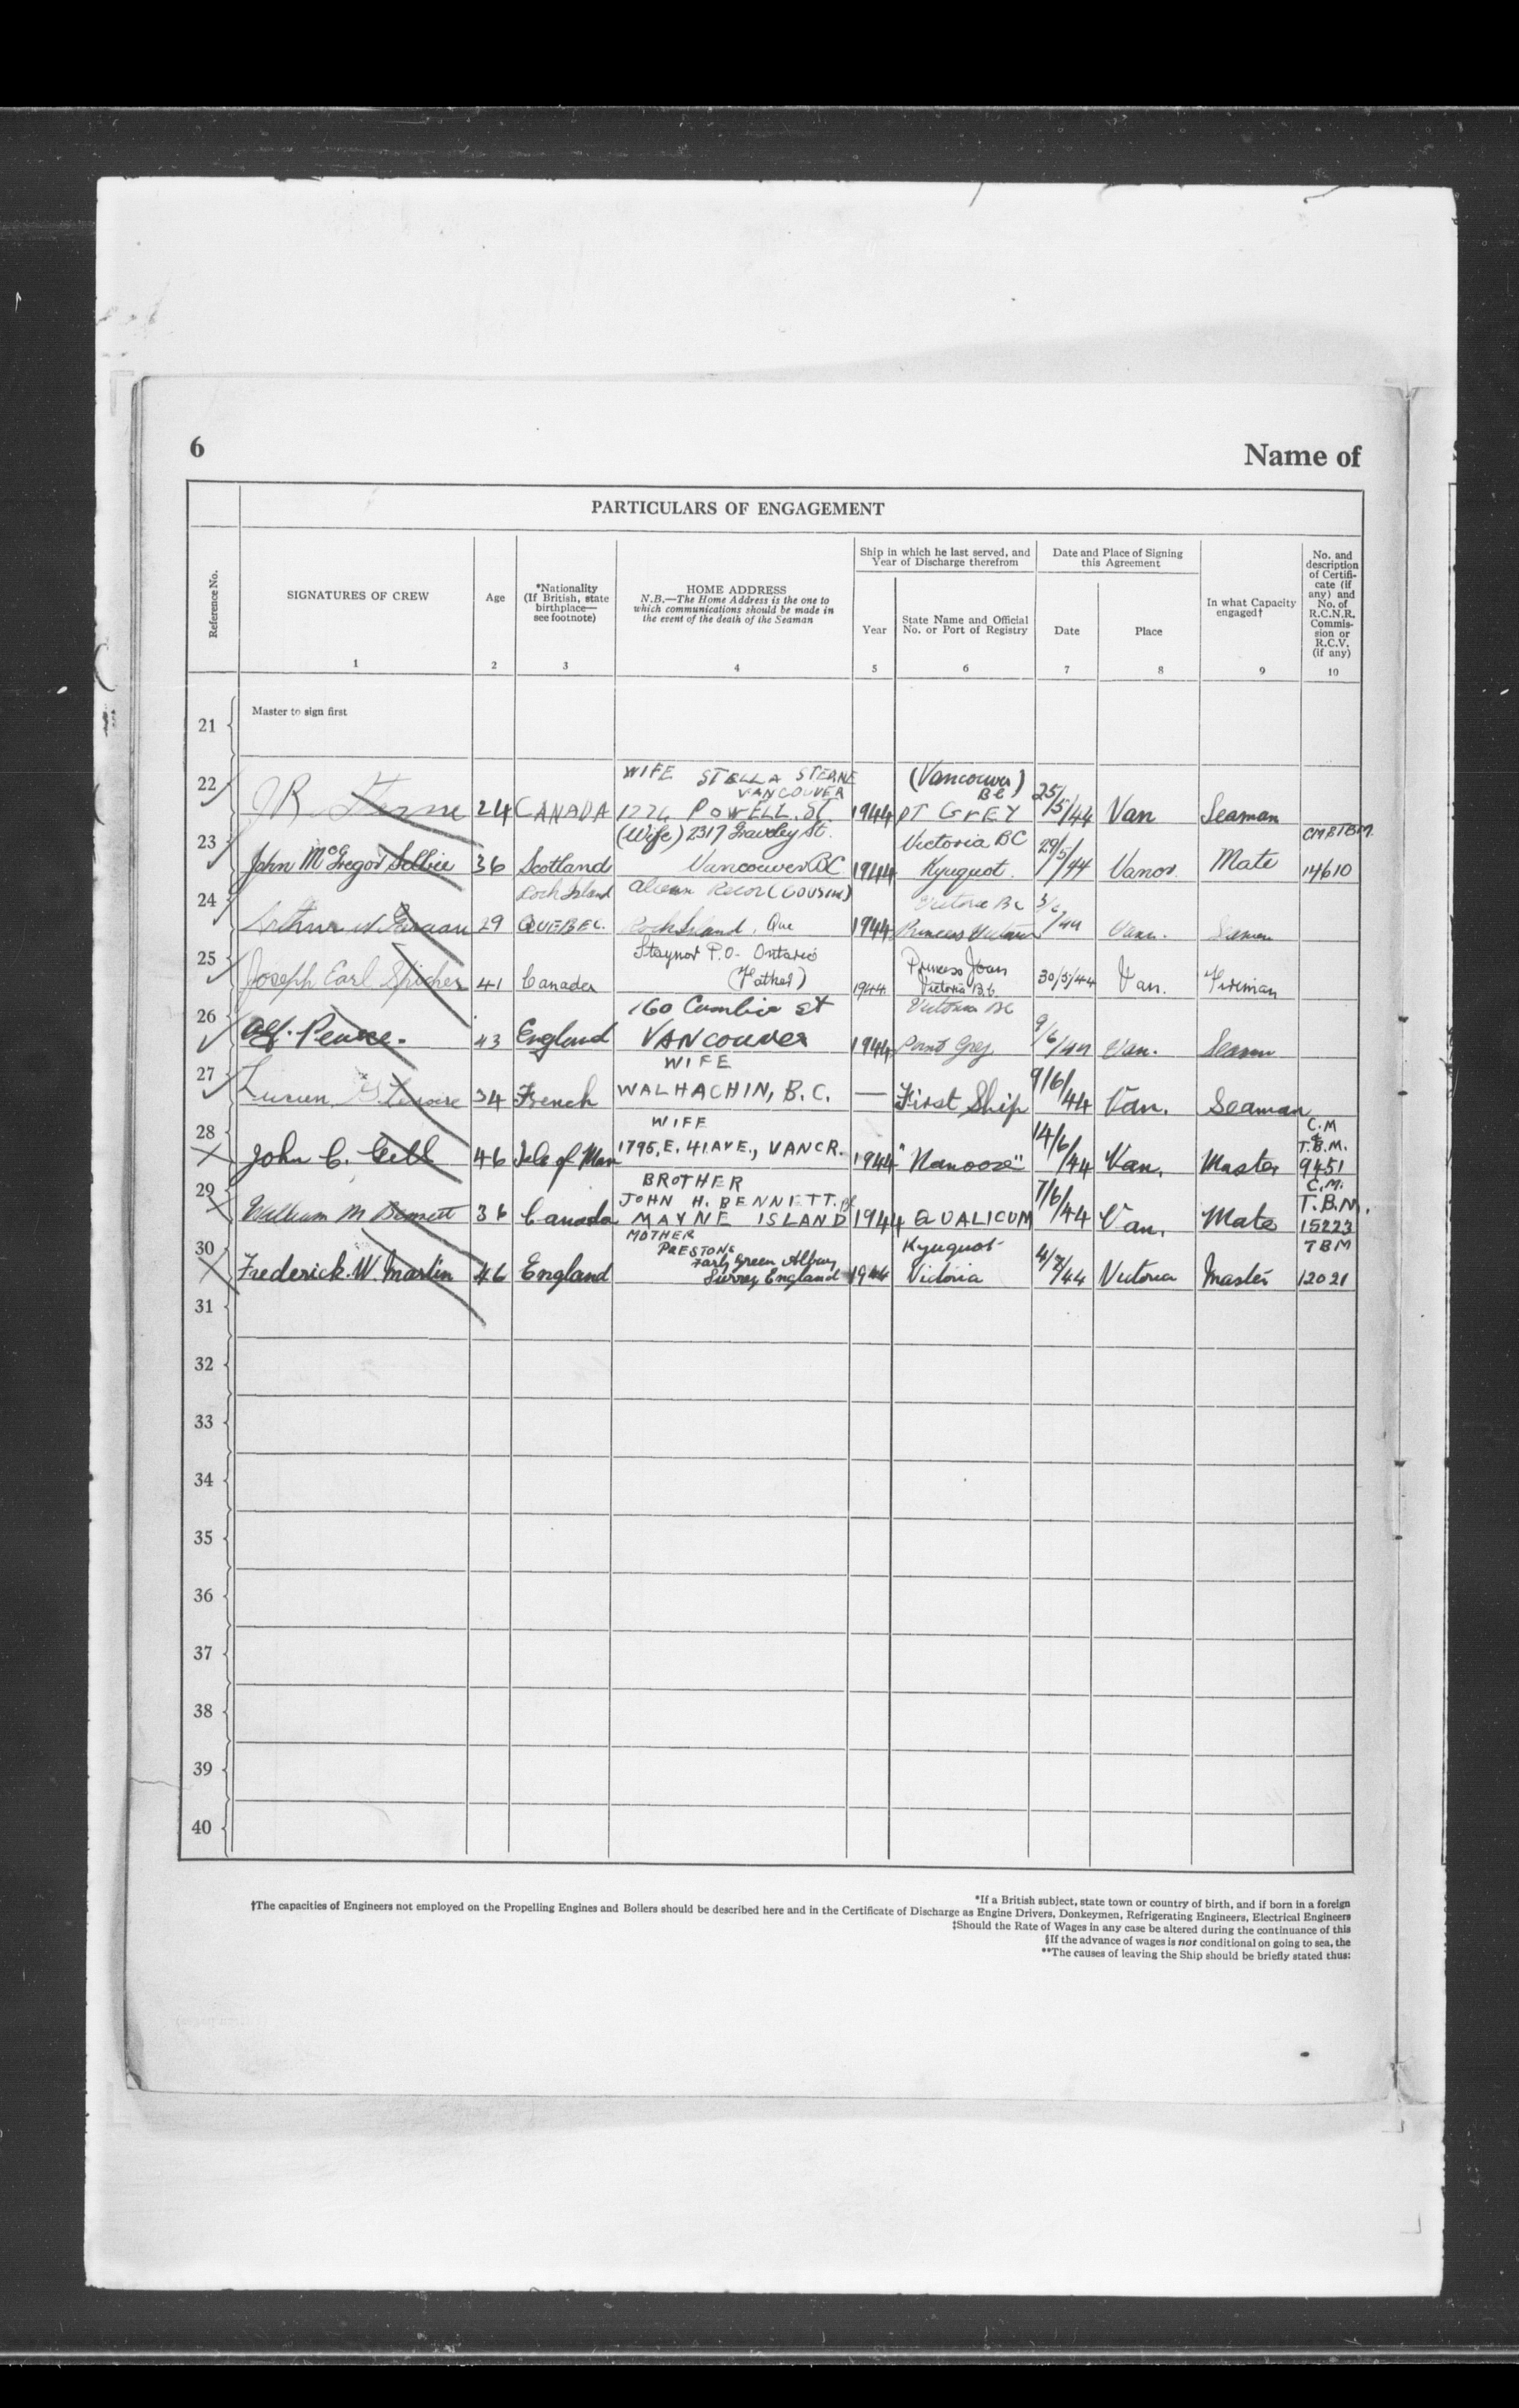 6
Name of
PARTICULARS OF ENGAGEMENT
Reference No.
SIGNATURES OF CREW
1
Age
2
*Nationality
(If British, state
birthplace—
see footnote)
3
HOME ADDRESS
N.B.—The Home Address is the one to
which communications should be made in
the event of the death of the Seaman
4
Ship in which he last served, and
Year of Discharge therefrom
Year
5
State Name and Official
No. or Port of Registry
6
Date and Place of Signing
this Agreement
Date
7
Place
8
In what Capacity
engaged†
9
No. and
description
of Certifi-
cate (if
any) and
No. of
R.C.N.R.
Commis-
sion or
R.C.V.
(if any)
10
21
Master to sign first
22
WIFE STELLA STERNE (Vancouver)
VANCOUVER BC 25/
JR Sterne 24 CANADA POWELL. ST. 1944 PT GREY /5/44 Van Seaman
23
(Wife) 2317 Graveley St. Victoria BC 29/5/ CM&TBM
John McGregor Selbie 36 Scotland Vancouver BC 1944 Kyuquot. /44 Mate 14610
24
Rock Island (COUSIN) Victoria BC 3/6
Arthur 29 QUEBEC. Rock Island, Que 1944 Princess Victoria /44 Vanc. Seaman
25
Staynor P.O. Ontario Princess Joan
Joseph Earl 41 Canada (Father) 1944 Victoria B.C. 30/5/44 Van. Fireman
26
160 Cambie St Victoria BC 9
Alf. Pearce. 43 England VANCOUVER 1944 Point Grey /6/44 Van. Seaman
27
WIFE 9/6/
Lucien 34 French WALHACHIN, B.C. — First Ship /44 Van. Seaman
28
WIFE 14/6 C.M
& T.B.M.
John C. 46 Isle of Man 1795, E. 41 AVE., VANCR. 1944 "Nanoose" /44 Van. Master 9451
29
BROTHER C.M.
JOHN H. BENNETT. 7/6 T.B.M.
William M Bennett 36 Canada MAYNE ISLAND 1944 QUALICUM /44 Van. Mate 15223
30
MOTHER Kyuquot TBM
PRESTONS
Farly Green Albury 4/7
Frederick. W. Martin 46 England Surrey England 1944 Victoria /44 Victoria Master 12021
31
32
33
34
35
36
37
38
39
40
*If a British subject, state town or country of birth, and if born in a foreign
†The capacities of Engineers not employed on the Propelling Engines and Boilers should be described here and in the Certificate of Discharge as Engine Drivers, Donkeymen, Refrigerating Engineers, Electrical Engineers
‡Should the Rate of Wages in any case be altered during the continuance of this
§If the advance of wages is not conditional on going to sea, the
**The causes of leaving the Ship should be briefly stated thus: